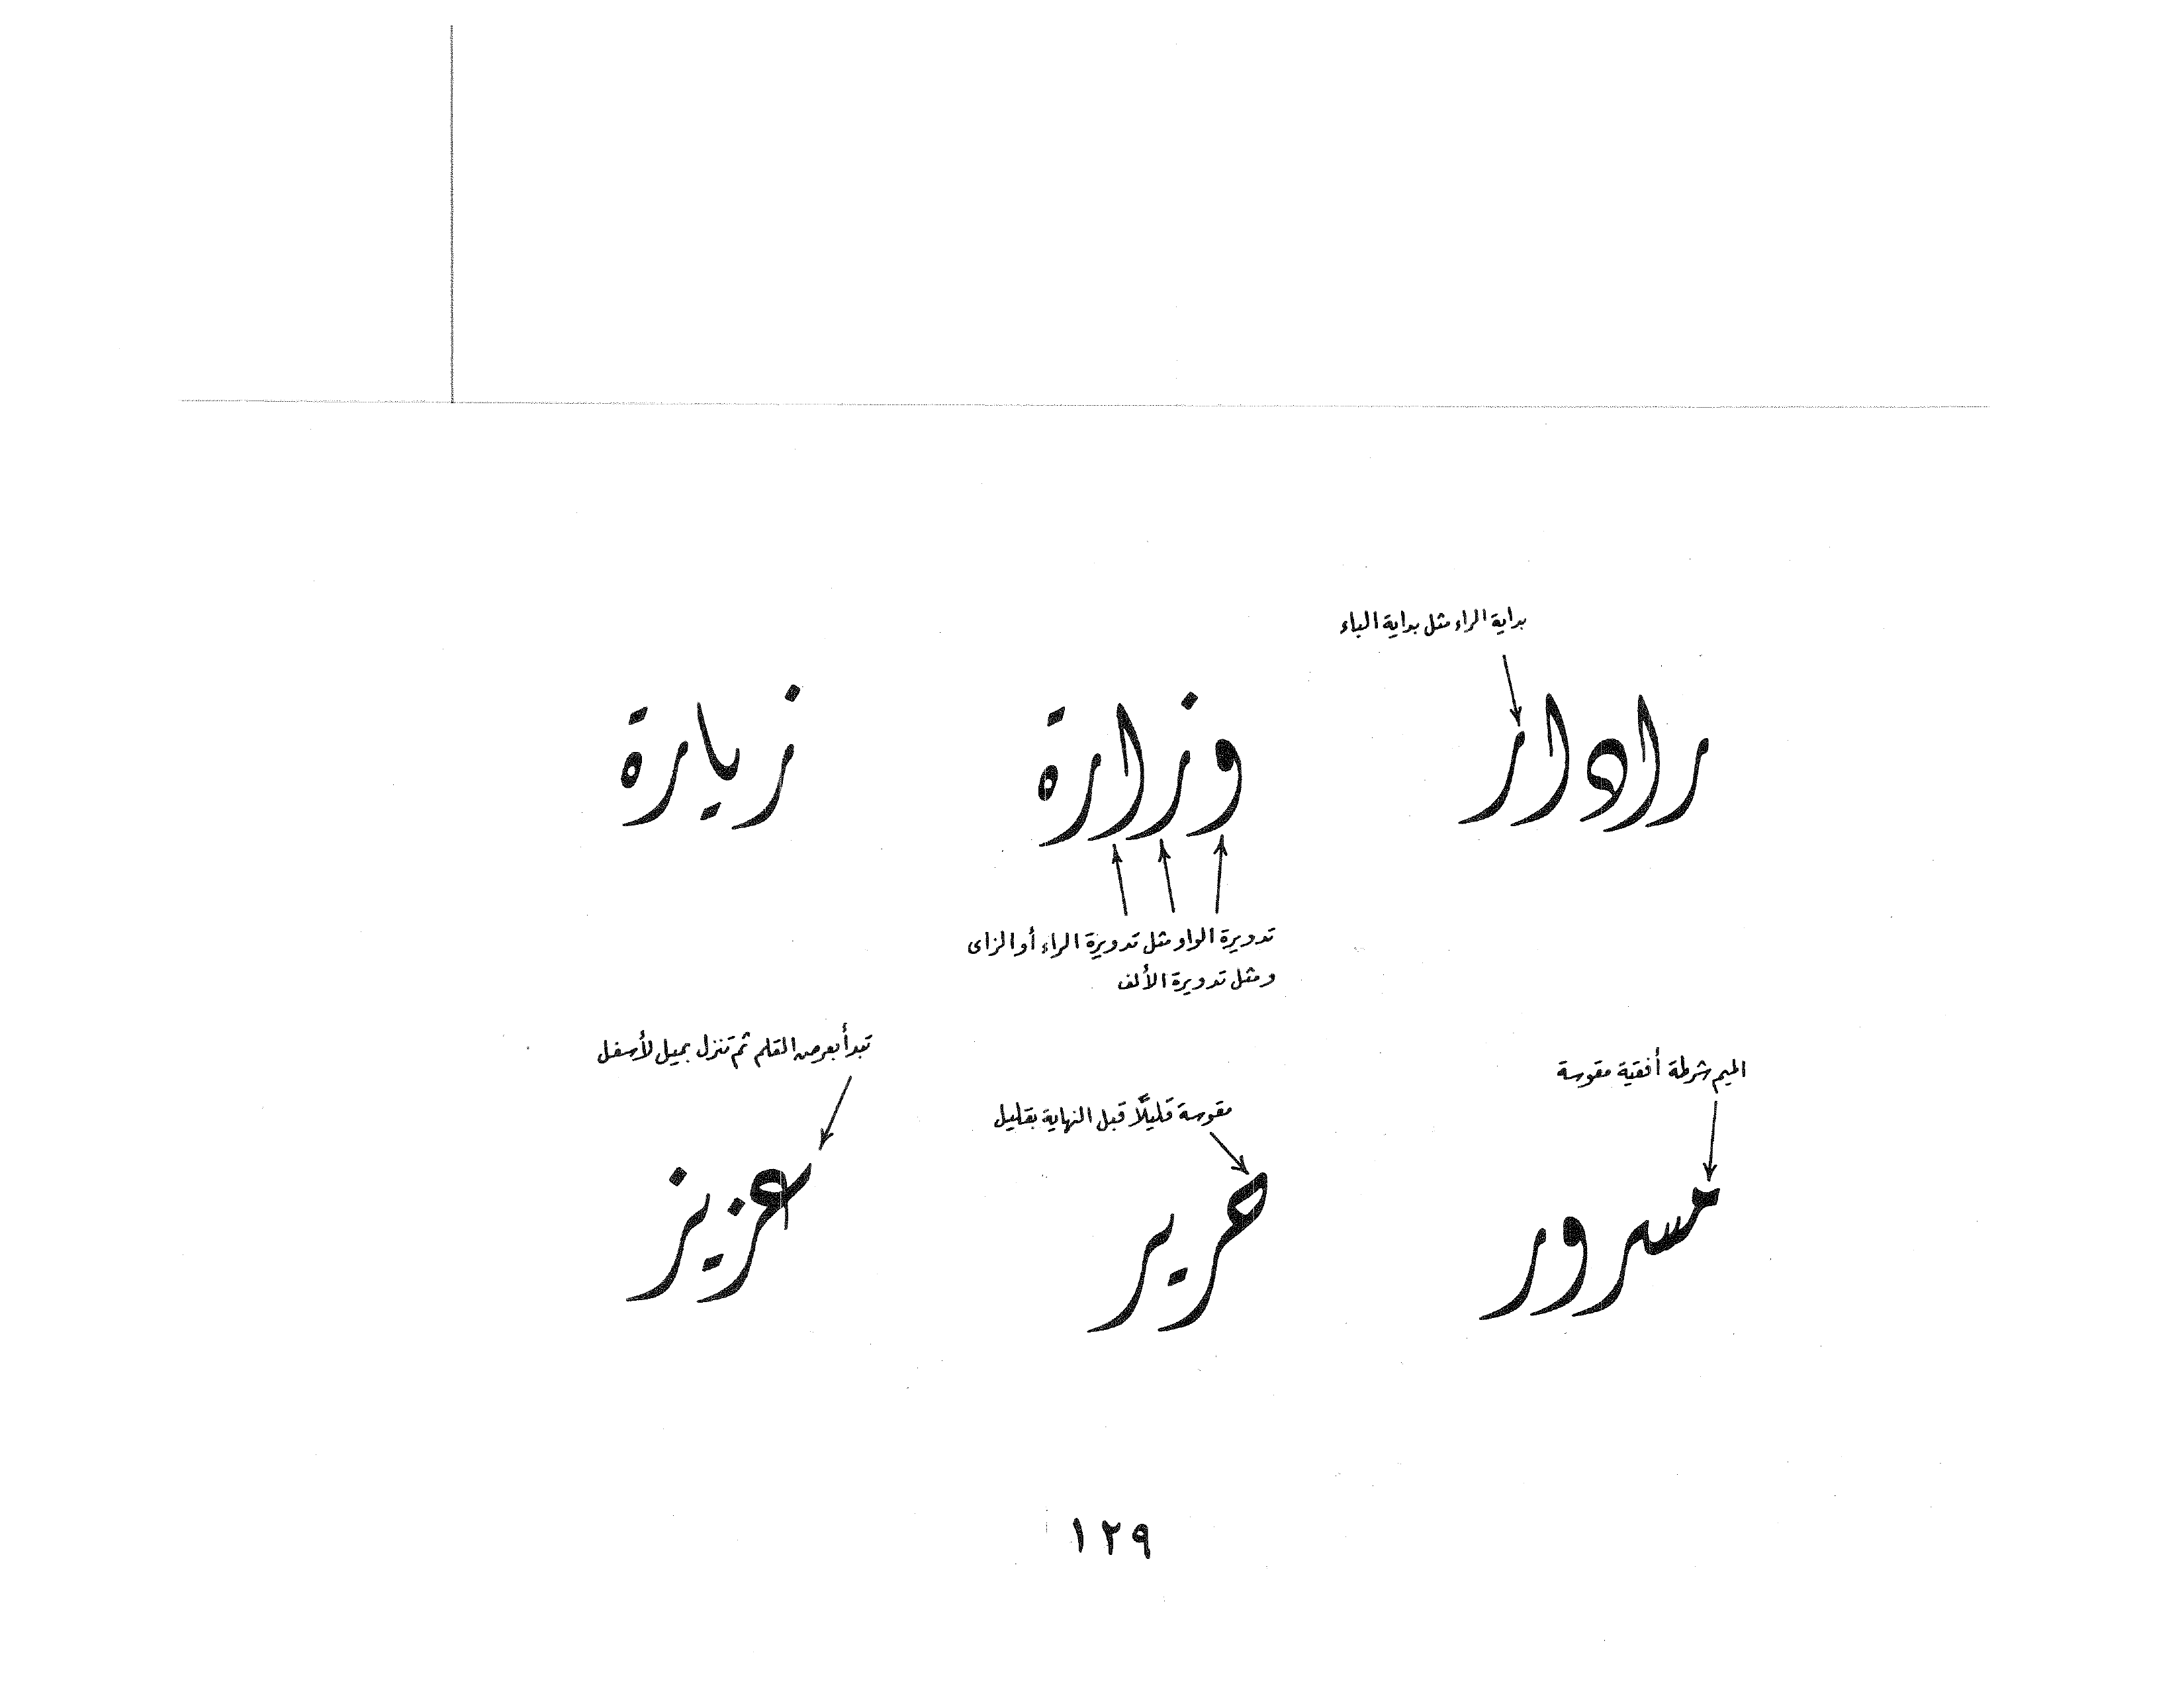 بداية الراء مثل بداية الباء
رادار
وزارة
زيارة
تدويرة الواو مثل تدويرة الراء أو الزاى
ومثل تدويرة الألف
الميم شرطة أفقية مقوسة
مقوسة قليلًا قبل النهاية بقليل
تبدأ بعرض القلم ثم تنزل بميل لأسفل
مسرور
حرير
عزيز
١٢٩